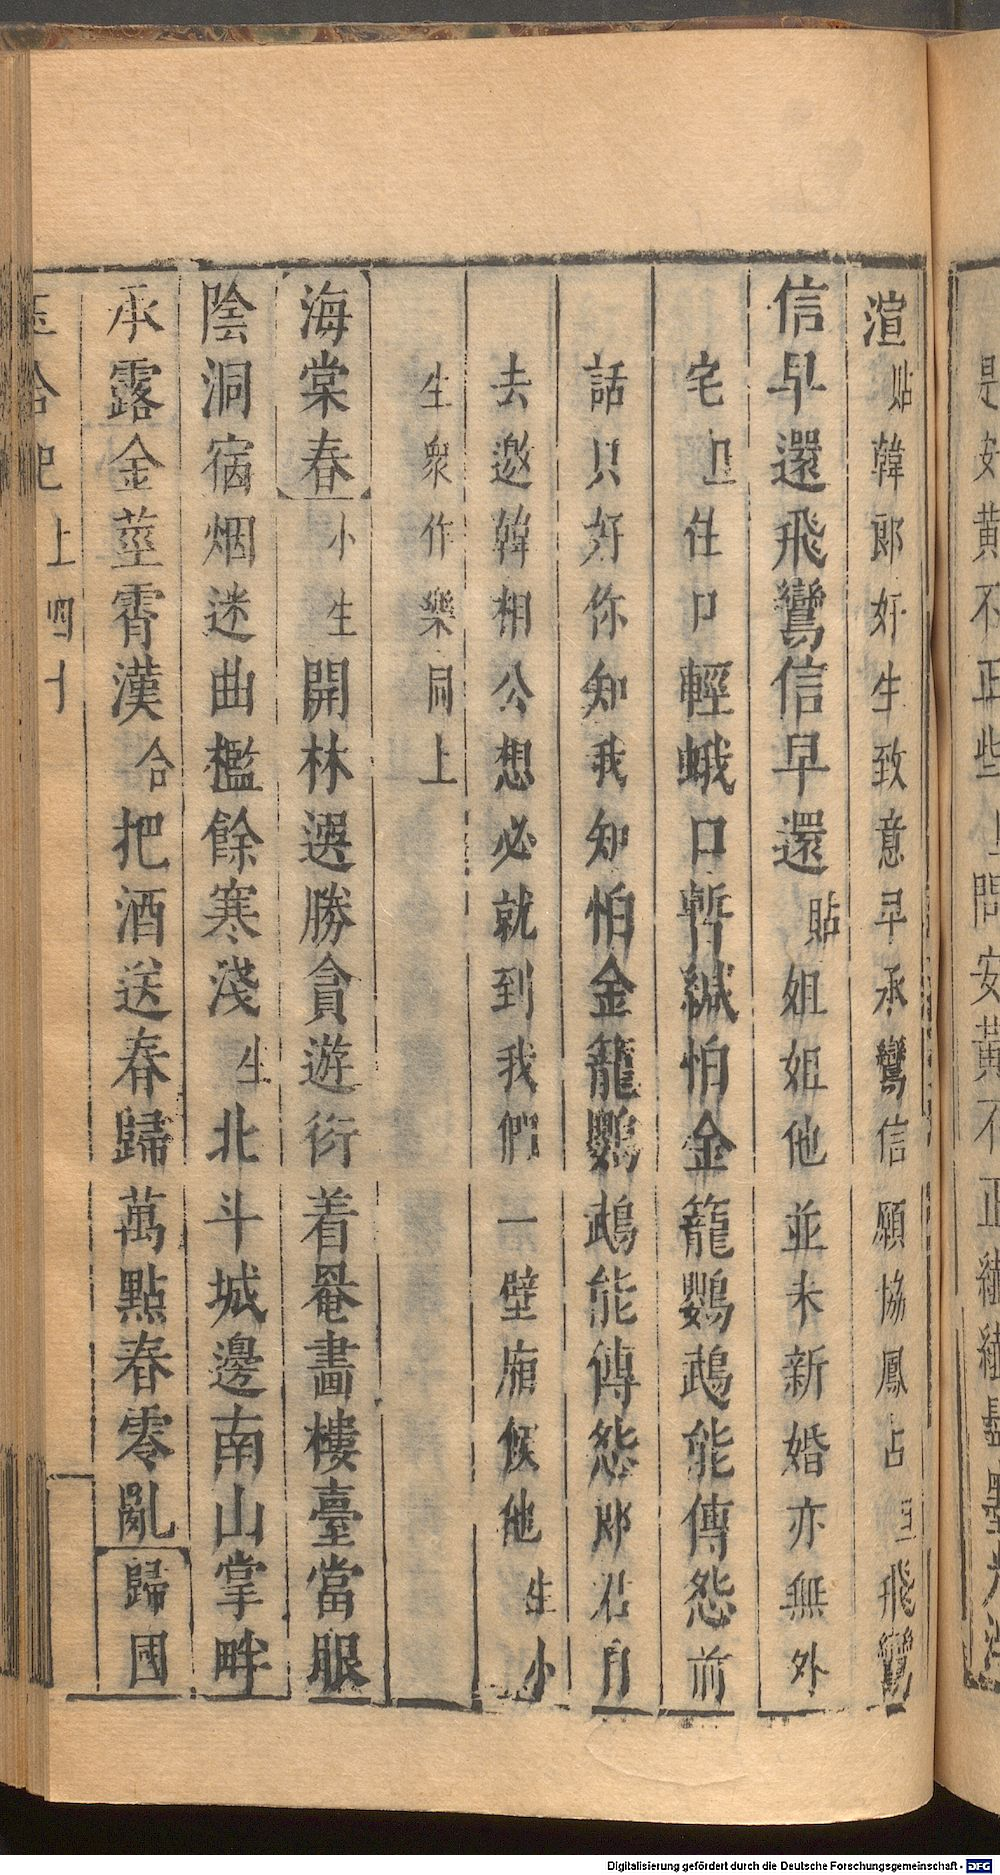 渲貼韓郎好生致意早承鸞信願協鳳占旦飛鸞
信早還飛鸞信早還貼姐姐他並未新婚亦無外
宅旦住口輕蛾口暫緘怕金籠鸚鵡能傳怨前
話只好你知我知怕金籠鸚鵡能傳怨郎君門
去邀韓相公想必就到我們一壁廂候他生小
生衆作樂同上
海棠春小生開林選勝貪遊衍着罨畫樓臺當眼
陰洞宿烟迷曲檻餘寒淺生北斗城邊南山掌畔
承露金莖霄漢合把酒送春歸萬點春零亂歸國
玉合記上四十
是好黃不正些問安黃不正纖纖
Digitalisierung gefördert durch die Deutsche Forschungsgemeinschaft - DFG